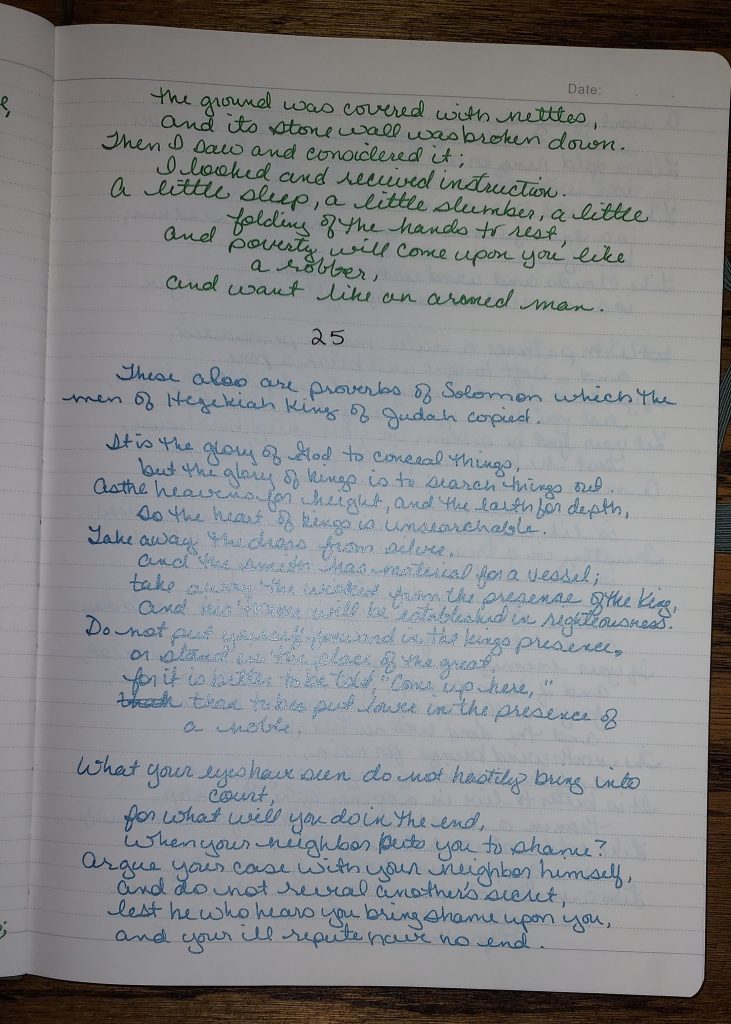 Date:
the ground was covered with nettles,
and its stone wall was broken down.
Then I saw and considered it;
I looked and received instruction.
A little sleep, a little slumber, a little
folding of the hands to rest,
and poverty will come upon you like
a robber,
and want like an armed man.
25
These also are proverbs of Solomon which the
men of Hezekiah King of Judah copied.
It is the glory of God to conceal things,
but the glory of kings is to search things out.
As the heavens for height, and the earth for depth,
so the heart of kings is unsearchable.
Take away the dross from silver,
and the smith has material for a vessel;
take away the wicked from the presence of the King,
and his throne will be established in righteousness.
Do not put yourself forward in the kings presence,
or stand in the place of the great
for it is better to be told, "Come up here,"
than to be put lower in the presence of
a noble.
What your eyes have seen do not hastily bring into
court,
for what will you do in the end,
when your neighbor puts you to shame?
Argue your case with your neighbor himself,
and do not reveal another's secret,
lest he who hears you bring shame upon you,
and your ill repute have no end.